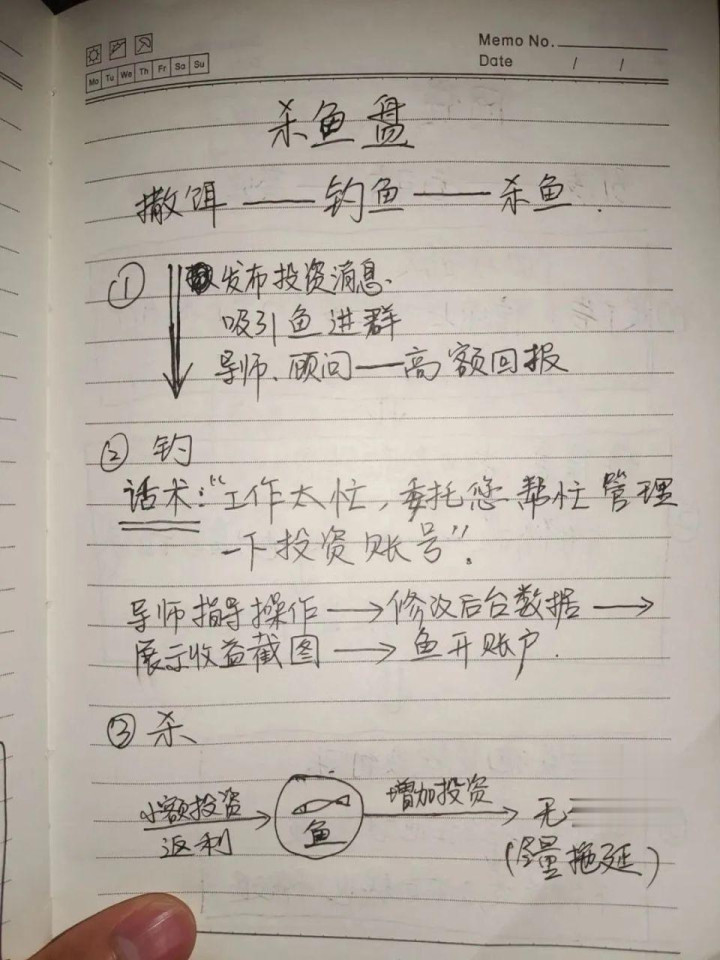 Memo No.
Mo Tu We Th Fr Sa Su
Date / /
杀鱼盘
撒饵——钓鱼——杀鱼.
① 发布投资消息.
吸引鱼进群
导师、顾问—高额回报
② 钓
话术:“工作太忙,委托您帮忙管理
一下投资账号”.
导师指导操作→修改后台数据→
展示收益截图→鱼开账户.
③ 杀
小额投资 增加投资
返利 鱼 无
(尽量拖延)